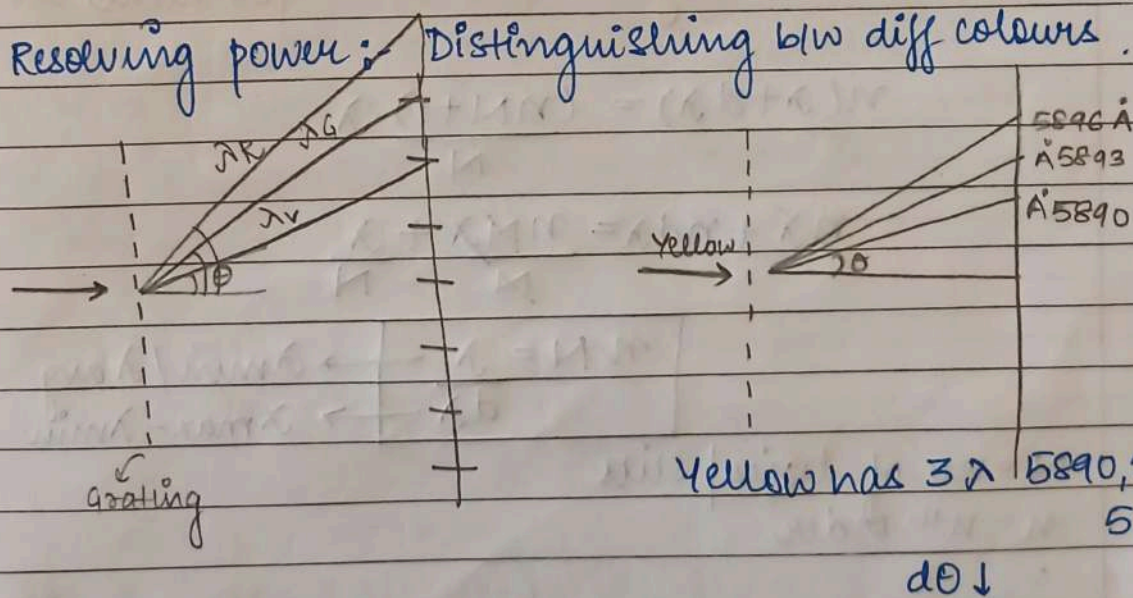 Resolving power :- Distinguishing b/w diff colours.
λR
λG
λV
θ
Grating
Yellow
θ
5896 Å
Å 5893
Å 5890
Yellow has 3 λ 5890,
5
dθ ↓